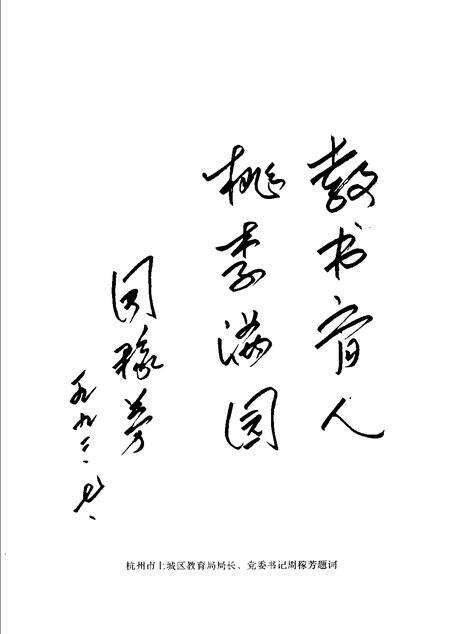 教书育人
桃李满园
周稼芳
一九九二.七.
杭州市上城区教育局局长、党委书记周稼芳题词